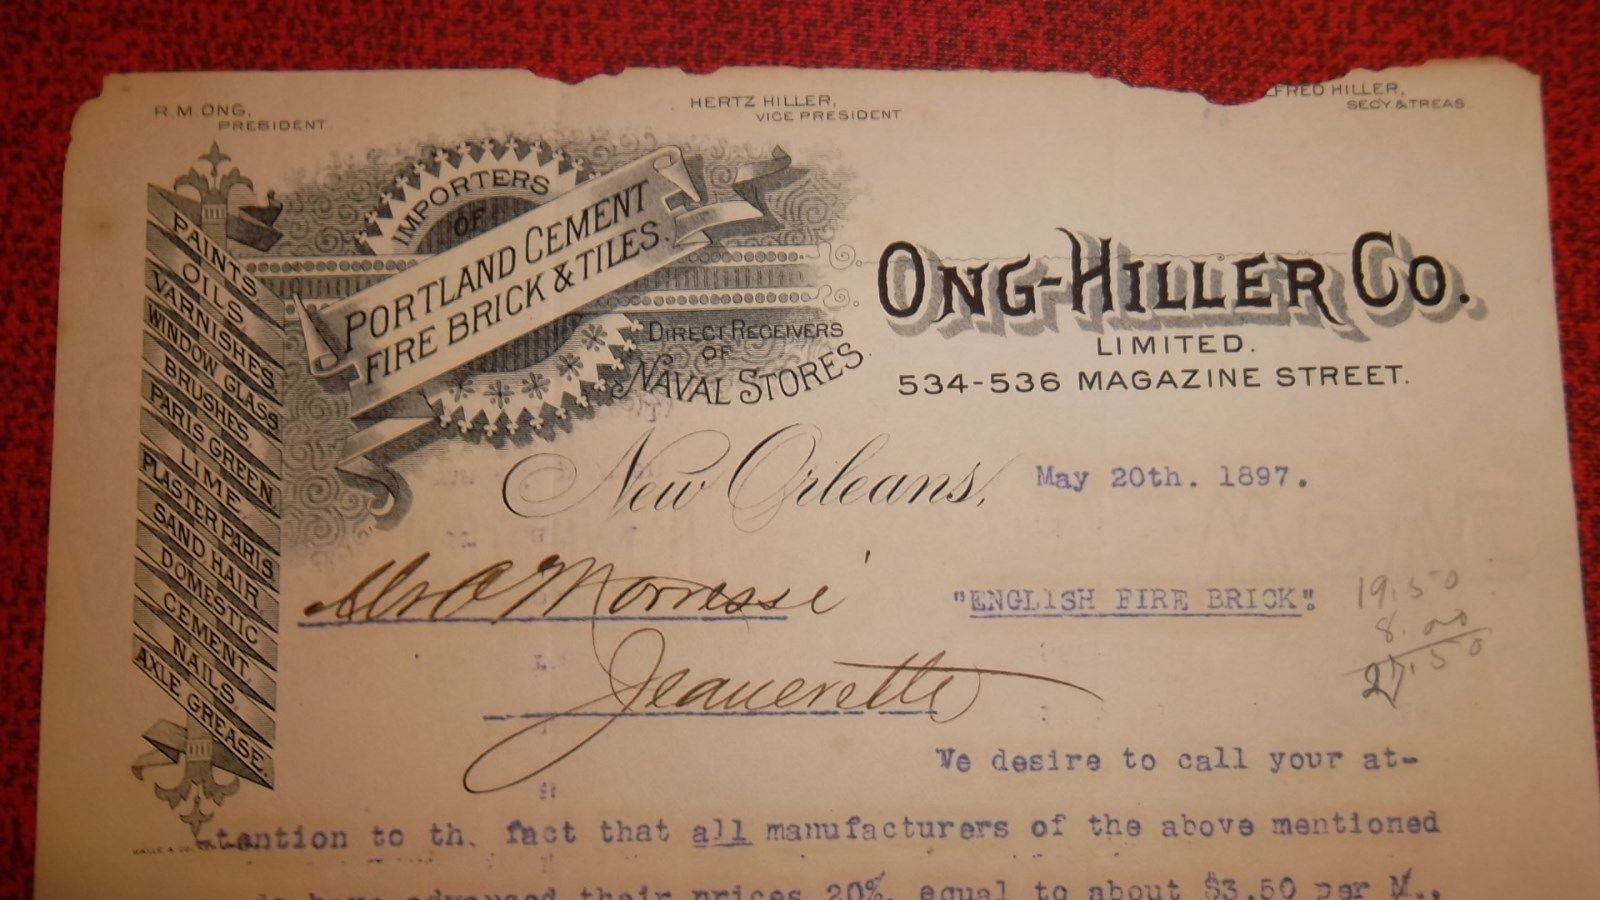 R. M ONG,
PRESIDENT
HERTZ HILLER,
VICE PRESIDENT
LFRED HILLER,
SECY. & TREAS
IMPORTERS
OF
PORTLAND CEMENT
FIRE BRICK & TILES.
DIRECT RECEIVERS
OF
NAVAL STORES.
PAINTS
OILS,
VARNISHES,
WINDOW GLASS
BRUSHES,
PARIS GREEN
LIME,
PLASTER PARIS
SAND HAIR
DOMESTIC
CEMENT,
NAILS,
AXLE GREASE.
ONG-HILLER CO.
LIMITED.
534-536 MAGAZINE STREET.
New Orleans, May 20th. 1897.
"ENGLISH FIRE BRICK".
19.50
8.00
27.50
Jeanerette
We desire to call your at-
tention to th. fact that all manufacturers of the above mentioned
have advanced their prices 20%, equal to about $3.50 per M.,